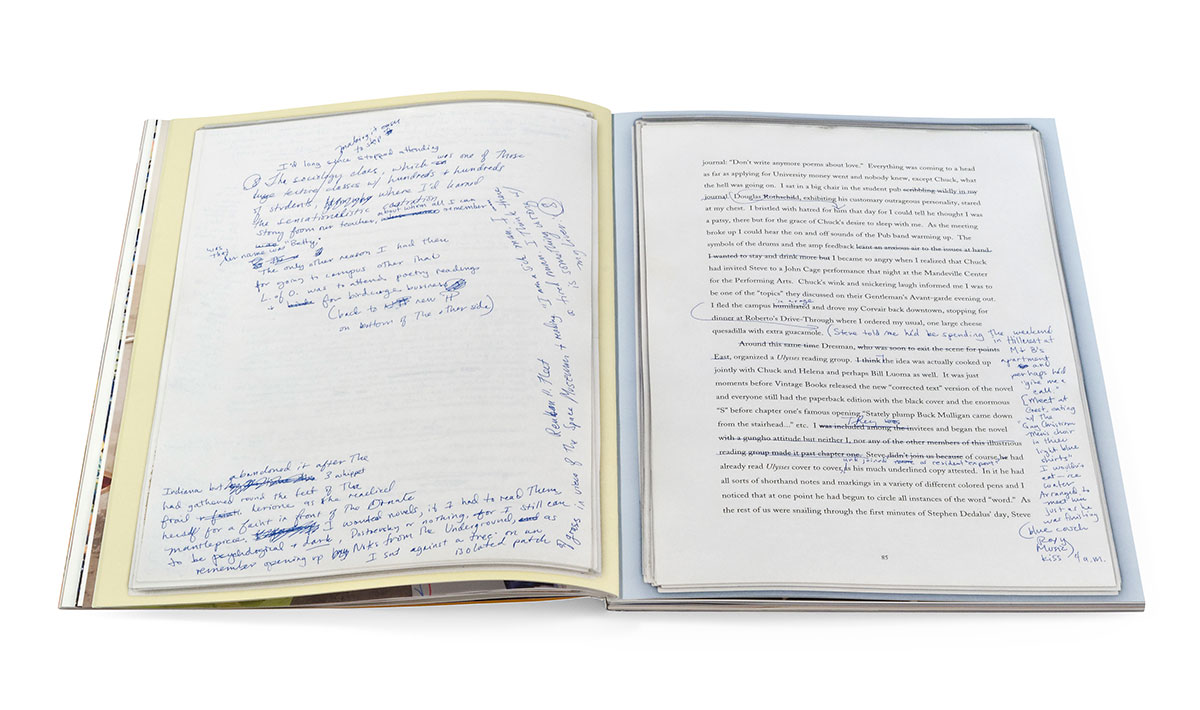 making it easy
to skip
I'd long since stopped attending
The sociology class, which was one of those
huge lecture classes w/ hundreds + hundreds
of students, where I'd learned
the sensationalistic
story from our teacher, about whom all I can remember
was
her name was "Betty."
The only other reason I had then
for going to campus other than
L. of O. was to attend poetry readings
+ for birdcage business
(back to new "H"
on bottom of the other side)
abandoned it after the
Indiana but 's whippet
had gathered round the feet of the
frail heroine as she realized
herself for a faint in front of the ornate
mantlepiece. I wanted novels, if I had to read them,
to be psychological + dark, Dostoevsky or nothing, for I still can
remember opening up Notes from the Underground, and as
I sat against a tree on an
isolated patch
of grass in view of the Space Museum + reading "I am a sick man, I
Reuben H. Fleet
am a spiteful man
my liver
journal: "Don't write anymore poems about love."  Everything was coming to a head
as far as applying for University money went and nobody knew, except Chuck, what
the hell was going on.  I sat in a big chair in the student pub scribbling wildly in my
journal. Douglas Rothschild, exhibiting his customary outrageous personality, stared
at my chest.  I bristled with hatred for him that day for I could tell he thought I was
a patsy, there but for the grace of Chuck's desire to sleep with me.  As the meeting
broke up I could hear the on and off sounds of the Pub band warming up.  The
symbols of the drums and the amp feedback leant an anxious air to the issues at hand.
I wanted to stay and drink more but I became so angry when I realized that Chuck
had invited Steve to a John Cage performance that night at the Mandeville Center
for the Performing Arts.  Chuck's wink and snickering laugh informed me I was to
be one of the "topics" they discussed on their Gentleman's Avant-garde evening out.
in a rage
I fled the campus humiliated and drove my Corvair back downtown, stopping for
dinner at Roberto's Drive-Through where I ordered my usual, one large cheese
quesadilla with extra guacamole. (Steve told me he'd be spending the weekend
in Hillcrest at
Mr B's
apartment
and
perhaps he'd
"give me a
call."
Around this same time Dresman, who was soon to exit the scene for points
East, organized a Ulysses reading group.  I think the idea was actually cooked up
jointly with Chuck and Helena and perhaps Bill Luoma as well.  It was just
moments before Vintage Books released the new "corrected text" version of the novel
and everyone still had the paperback edition with the black cover and the enormous
"S" before chapter one's famous opening "Stately plump Buck Mulligan came down
from the stairhead..." etc.  I was included among the invitees and began the novel
They
with a gungho attitude but neither I, nor any of the other members of this illustrious
reading group made it past chapter one.  Steve didn't join us because of course he had
resident "expert"
already read Ulysses cover to cover, as his much underlined copy attested.  In it he had
all sorts of shorthand notes and markings in a variety of different colored pens and I
noticed that at one point he had begun to circle all instances of the word "word."  As
the rest of us were snailing through the first minutes of Stephen Dedalus' day, Steve
[Meet at
Crest, eating
w/ the
Gay Christian
Men's choir
in their
light blue
shirts"
I wouldn't
eat – ice
water
Arranged to
meet him
just as he
was finishing
(blue couch
(Roxy
Music)
kiss 4 a.m.
85